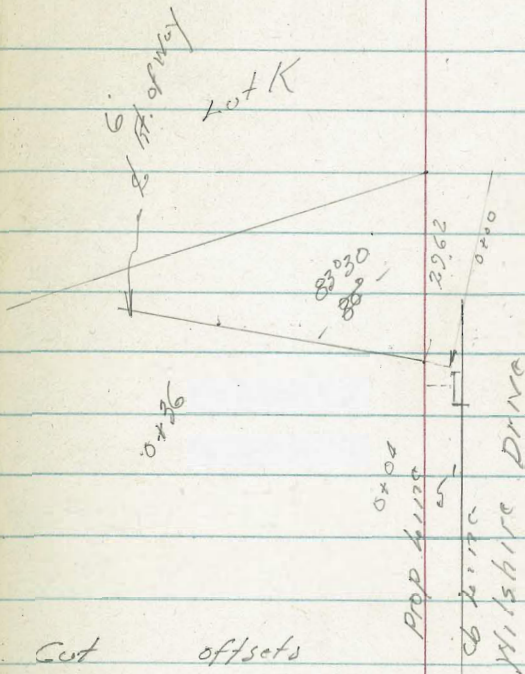 Lot K
6'
Rt. of Way
83°30
29.62
0+00
0+36
0+04
5
Prop. Line
Cb Line
Wilshire Drive
Cut offsets